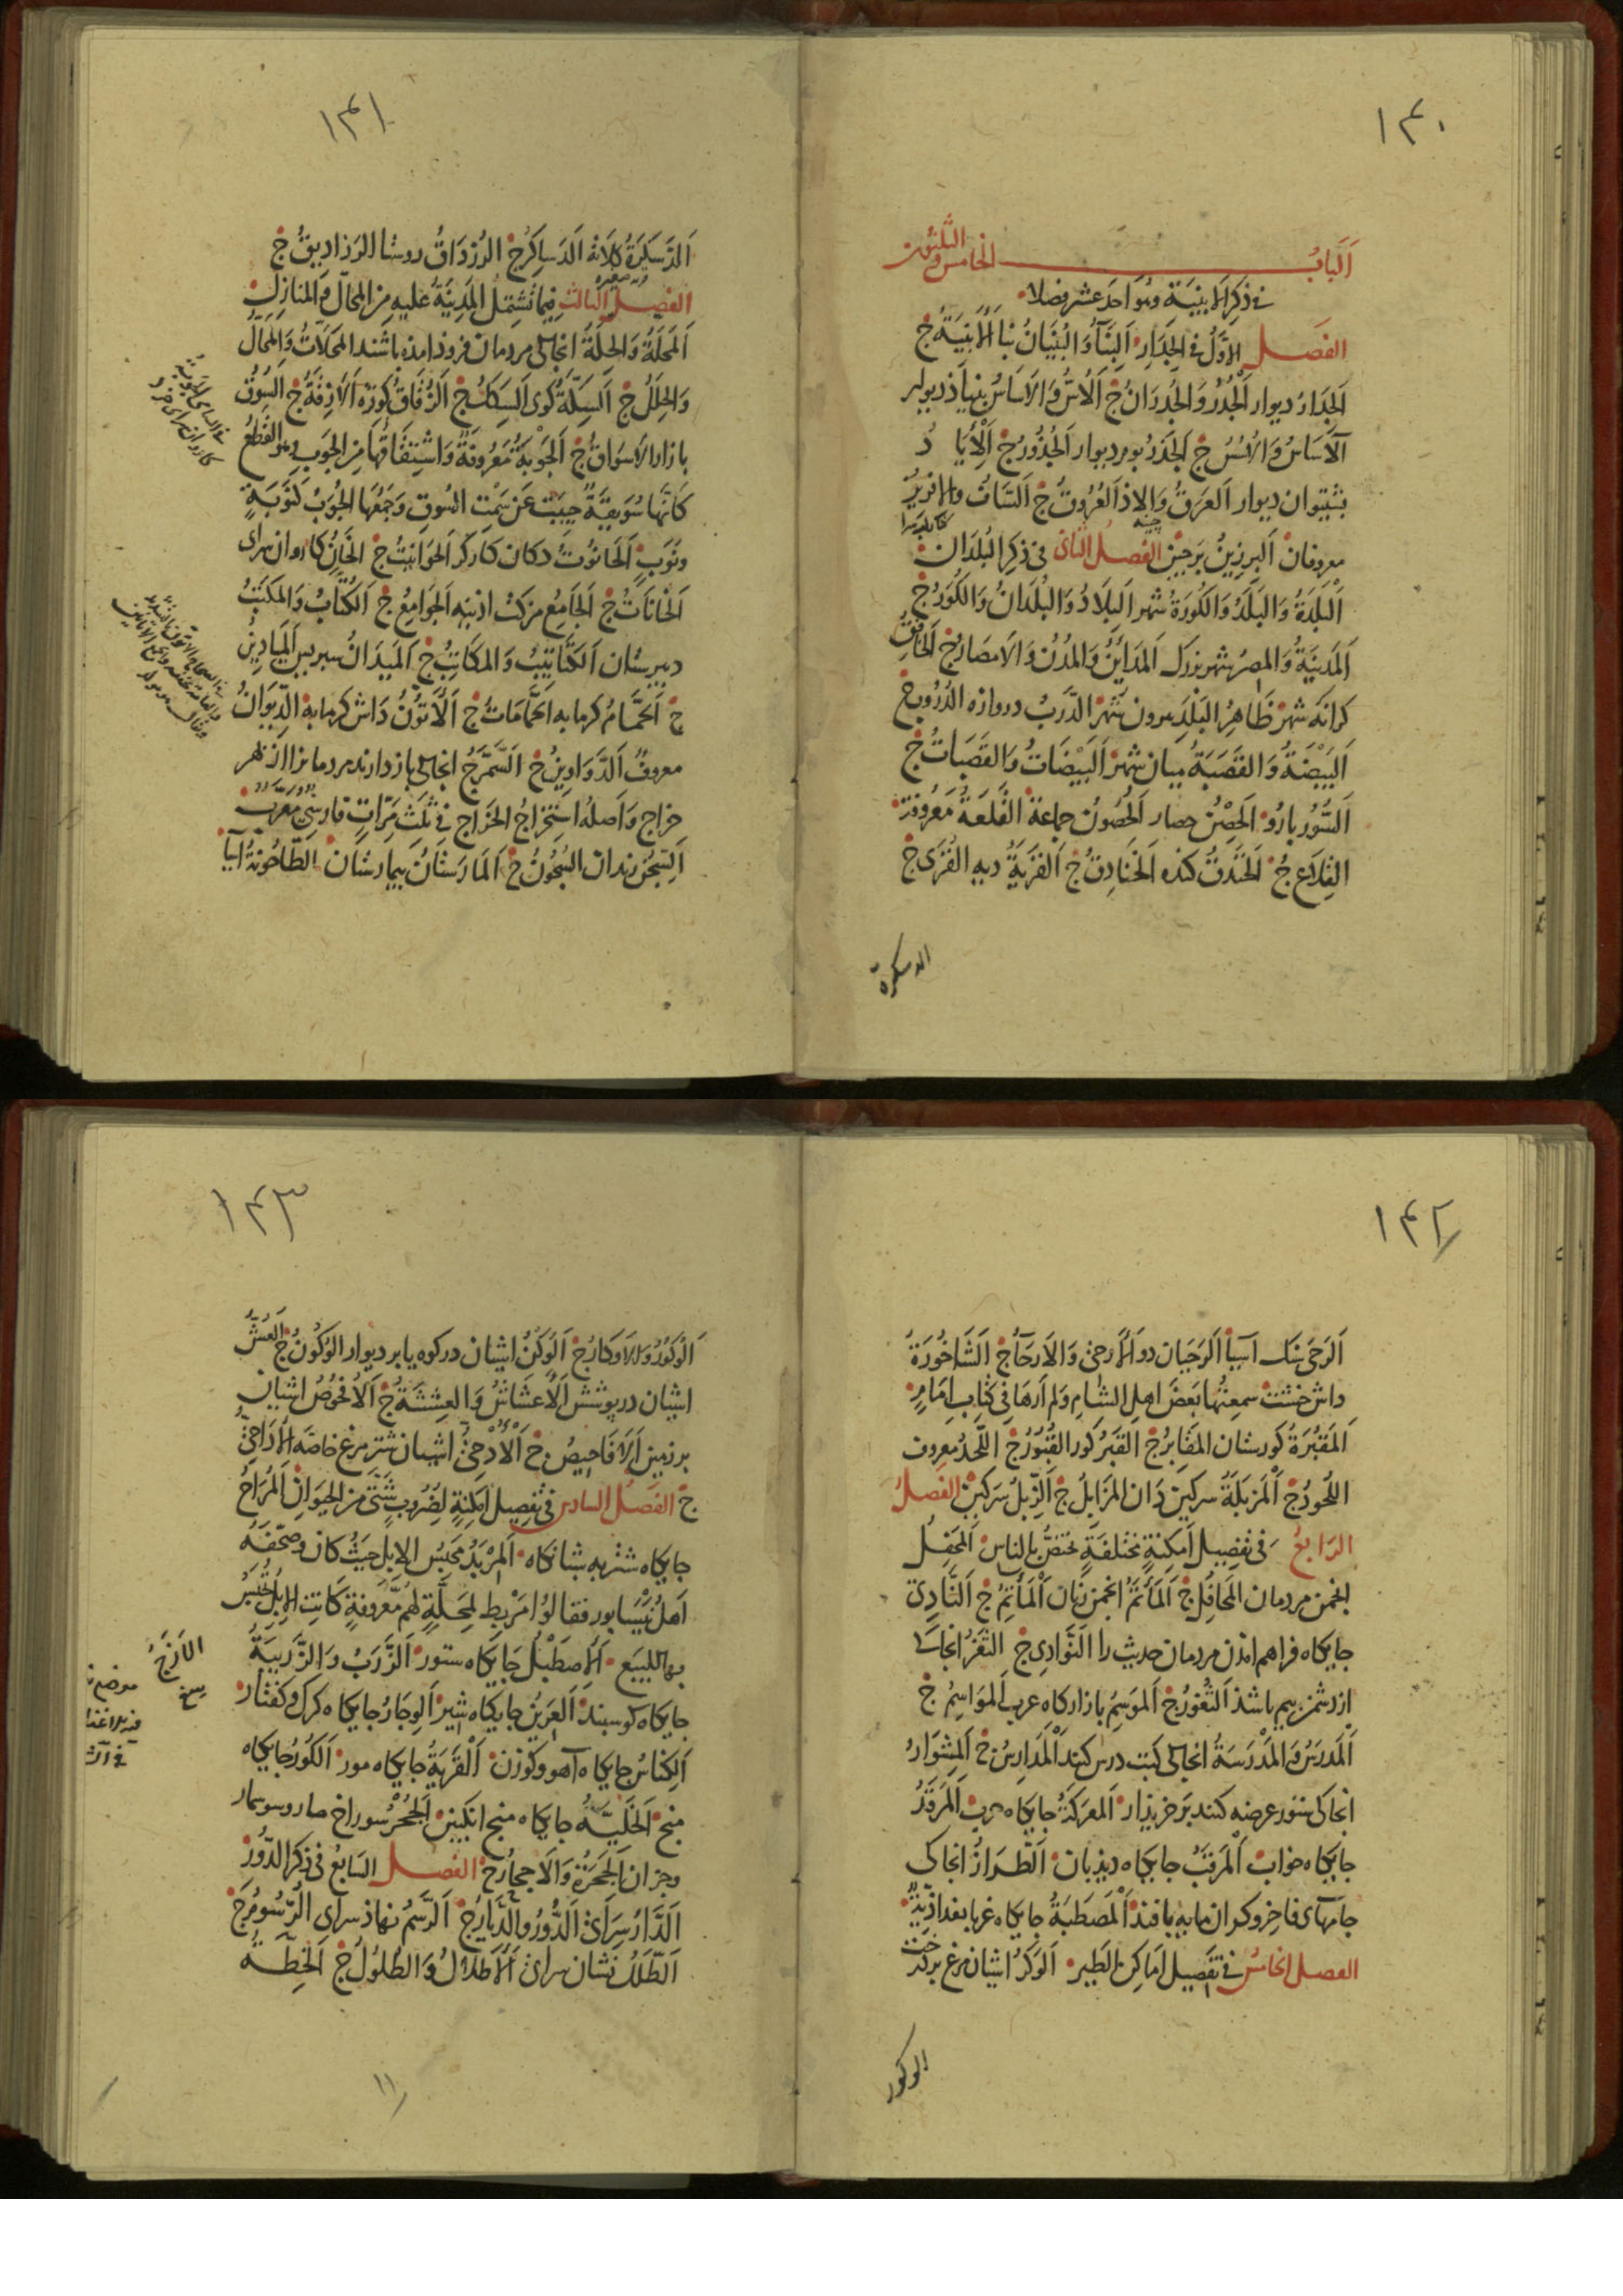 ١٤٠
اَلْبَابُ الخامس والثلثون
فی ذکر الابنیة وهو احد عشر فصلا
الفصل الاوّل فی الجدار اَلبنآءُ وَالبُنْیَانُ بنا الاَبْنِیَةُ ج
اَلجِدَارُ دیوار الجُدُرُ وَالجُدْرَانُ ج اَلاُسُّ وَالاَسَاسُ بنیاذ دیوار
اَلآسَاسُ وَالاُسُسُ ج اَلجَذْرُ بوم دیوار اَلجُذُوْرُ ج اَلاِیَادُ
بشتیوان دیوار اَلعَرَقُ وَالاِذ العُرُوقُ ج اَلسَّافُ والافریزُ
معروفان اَلبِرزِینُ بَرجین الفصل الثانی فی ذکر البُلدَان
اَلْبَلْدَةُ وَالبَلَدُ وَالکُورَةُ شهر اَلبِلَادُ وَالبُلْدَانُ وَالکُوَرُ ج
اَلمَدِینَةُ وَالمِصرُ شهر بزرک اَلمَدَائِنُ وَالمُدُنُ وَالاَمصَارُ ج اَلخَافِقُ
کرانهٔ شهر ظَاهِرُ البَلَدِ بیرون شهر اَلدَّربُ دروازه الدُّرُوبُ ج
اَلبَیْضَةُ وَالقَصَبَةُ میان شهر اَلبَیْضَاتُ وَالقَصَبَاتُ ج
اَلسُّورُ بارُو اَلحِصْنُ حصار اَلحُصُونُ جماعة القَلعَةُ مَعرُوفة
القِلَاعُ ج اَلخَنْدَقُ کنده اَلخَنَادِقُ ج اَلقَریَةُ دیه القُرَی ج
الدسکرة
١٤١
اَلدَّسْکَرَةُ کلاته اَلدَّسَاکِرُ ج الرُّزْدَاقُ روستا الرَزادیقُ ج
الفصل الثالث فیما تشتمل المَدِینَةُ علیه من المحالّ وَالمنازل
اَلمَحَلَّةُ وَالحِلَّةُ انجاکی مردمان فروذ امذه باشند المَحَلَّاتُ وَالمَحَالُّ
وَالحِلَلُ ج اَلسِکَّةُ کوی اَلسِکَکُ ج اَلزُّقَاقُ کوزه اَلاَزِقَّةُ ج اَلسُوقُ
بازار الاَسوَاقُ ج اَلجَوْبَةُ مَعرُوفَةٌ وَاشتِقَاقُهَا مِنَ الجَوبِ وهو القَطعُ
کَاَنَّهَا سُوَیقَةٌ جِیبَت عَن سَمْتِ السُوقِ وَجَمْعُهَا الجُوَبُ کَنَوْبَةٍ
وَنُوَبٍ اَلحَانُوتُ دکان کارکر اَلحَوَانِیتُ ج اَلخَانُ کاروان سرای
اَلخَانَاتُ ج اَلجَامِعُ مزکت اذینه اَلجَوَامِعُ ج اَلکُتَّابُ وَالمَکتَبُ
دبیرستان اَلکَتَاتِیبُ وَالمکَاتِبُ ج اَلمَیدَانُ سبریس اَلمیَادِینُ
ج اَلحَمَّامُ کرمابه اَلحَمَّامَاتُ ج اَلاَتُّونُ دَاش کرمابه الدِّیوَانُ
معروفٌ اَلدَّوَاوِینُ ج اَلسَّمَرَّجُ انجاکی بازدارند مردمانرا از بهر
خراج وَاَصلُهُ استِخرَاجُ الخَرَاجِ فی ثَلٰثِ مَرَّاتٍ فارسِیٌّ مُعَرَّبٌ
اَلسِّجْنُ زندان السُّجُونُ ج اَلمَارَسْتَانُ بیمارستان الطَّاحُونَةُ آسیا
١٤٢
اَلرَحَی سنک آسیا اَلرَحَیَان دو الاَرحی وَالاَرحَآءُ ج اَلشَّاخُورَةُ
داش خشت سمعتُها بعضَ اهل الشام ولم اَرَهَا فی کتاب امامٍ
اَلمَقبُرَةُ کورستان المَقَابِرُ ج القَبْرُ کور القُبُورُ ج اللَّحدُ معروف
اللُحودُ ج اَلمَزبَلَةُ سرکین دَان المَزَابِلُ ج اَلزِّبلُ سرکین الفصلُ
الرابعُ فی تفصیل اَمکِنَةٍ مُختلفَةٍ تختصُّ بالناس اَلمَحفِلُ
انجمن مردمان المَحَافِلُ ج اَلمَأتَمُ انجمن زنان اَلمَأتِمُ ج اَلنَّادِی
جایکاه فراهم امذن مردمان حدیث را اَلنَّوَادِی ج الثَّغْرُ انجاکی
از دشمن بیم باشذ اَلثُّغُورُ ج اَلمَوسِمُ بازارکاه عرب المَوَاسِمُ ج
اَلمَدرَسُ وَالمَدْرَسَةُ انجاکی کتب درس کنند اَلمَدَارِسُ ج اَلمِشوَارُ
انجاکی ستور عرضه کنند بر خریذار اَلمَعرَکَةُ جایکاه حرب اَلمَرقَدُ
جایکاه خواب اَلمَرقَبُ جایکاه دیذبان اَلطِّرَازُ انجاکی
جامهآی فاخر وکران مایه بافند اَلمَصطَبَةُ جایکاه غربا بغداذیّةٌ
الفصل الخامس فی تفصیل اَماکن الطیر اَلوَکرُ اشیان مرغ بر درخت
الوکور
١٤٣
اَلوُکُورُ وَالاَوکَارُ ج اَلوَکنُ اشیان در کوه یا بر دیوار الوُکُونُ ج العُشُّ
اشیان در پوشش اَلاَعشَاشُ وَالعِشَشَةُ ج اَلاُفحُوصُ اشیان
بر زمین اَلاَفَاحِیصُ ج اَلاُدْحِیُّ اشیان شترمرغ خاصّه الاَدَاحِیُّ
ج الفصلُ السادس فی تفصیل اَمکِنةٍ لِضُروبٍ شتّی من الحیوان اَلمُرَاحُ
جایکاه شتر به شبانکاه اَلمِرْبَدُ مَحبِسُ الاِبِلِ حیثُ کان وصحَّفَهُ
اهلُ نَیْسَابور فقالوا مَرْبِط لِمَحَلَّةٍ لهم معروفةٍ کانت الابلُ تُحبَسُ
بها للبیع اَلاِصطَبْلُ جایکاه ستور اَلزَّربُ وَالزَّرِیبَةُ
جایکاه کوسبند اَلعَرِینُ جایکاه شیر اَلوِجَارُ جایکاه کرک وکفتار
اَلکِنَاسُ جایکاه آهو وکوزن اَلقَریَةُ جایکاه مور اَلکُورُ جایکاه
منج اَلخَلِیَّةُ جایکاه منج انکبین اَلجُحْرُ سوراخ مار وسوسمار
وجز ان اَلجِحَرَةُ وَالاَجحَارُ ج الفصل السابع فی ذکر الدُّور
اَلدَّارُ سرای اَلدُّورُ والدِّیَارُ ج اَلرَّسمُ نهاذ سرای الرُّسُومُ ج
اَلطَّلَلُ نشان سرای اَلاَطلَالُ وَالطُلُولُ ج اَلخِطَّةُ
١١